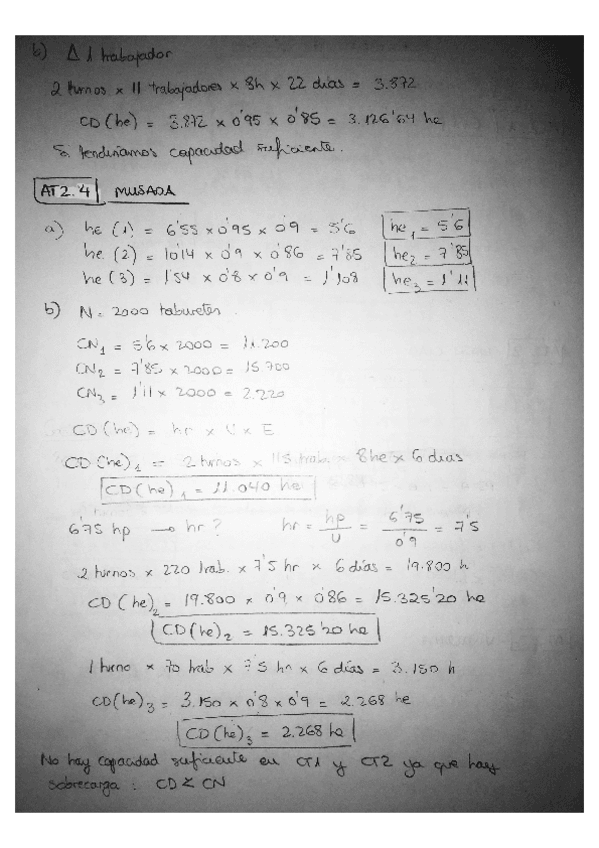 b) Δ 1 trabajador
2 turnos x 11 trabajadores x 8h x 22 días = 3.872
CD (he) = 3.872 x 0'95 x 0'85 = 3.126'64 he
Sí tendríamos capacidad suficiente.
AT2.4 MUSADA
a) he (1) = 6'55 x 0'95 x 0'9 = 5'6 he₁ = 5'6
he (2) = 10'14 x 0'9 x 0'86 = 7'85 he₂ = 7'85
he (3) = 1'54 x 0'8 x 0'9 = 1'108 he₃ = 1'11
b) N = 2000 taburetes.
CN₁ = 5'6 x 2000 = 11.200
CN₂ = 7'85 x 2000 = 15.700
CN₃ = 1'11 x 2000 = 2.220
CD (he) = hr x U x E
CD (he)₁ = 2 turnos x 115 trab. x 8he x 6 días
CD (he)₁ = 11.040 he
6'75 hp → hr? hr = hp / U = 6'75 / 0'9 = 7'5
2 turnos x 220 trab. x 7'5 hr x 6 días = 19.800 h
CD (he)₂ = 19.800 x 0'9 x 0'86 = 15.325'20 he
CD (he)₂ = 15.325'20 he
1 turno x 70 trab x 7'5 hr x 6 días = 3.150 h
CD (he)₃ = 3.150 x 0'8 x 0'9 = 2.268 he
CD (he)₃ = 2.268 he
No hay capacidad suficiente en CT1 y CT2 ya que hay
sobrecarga: CD < CN